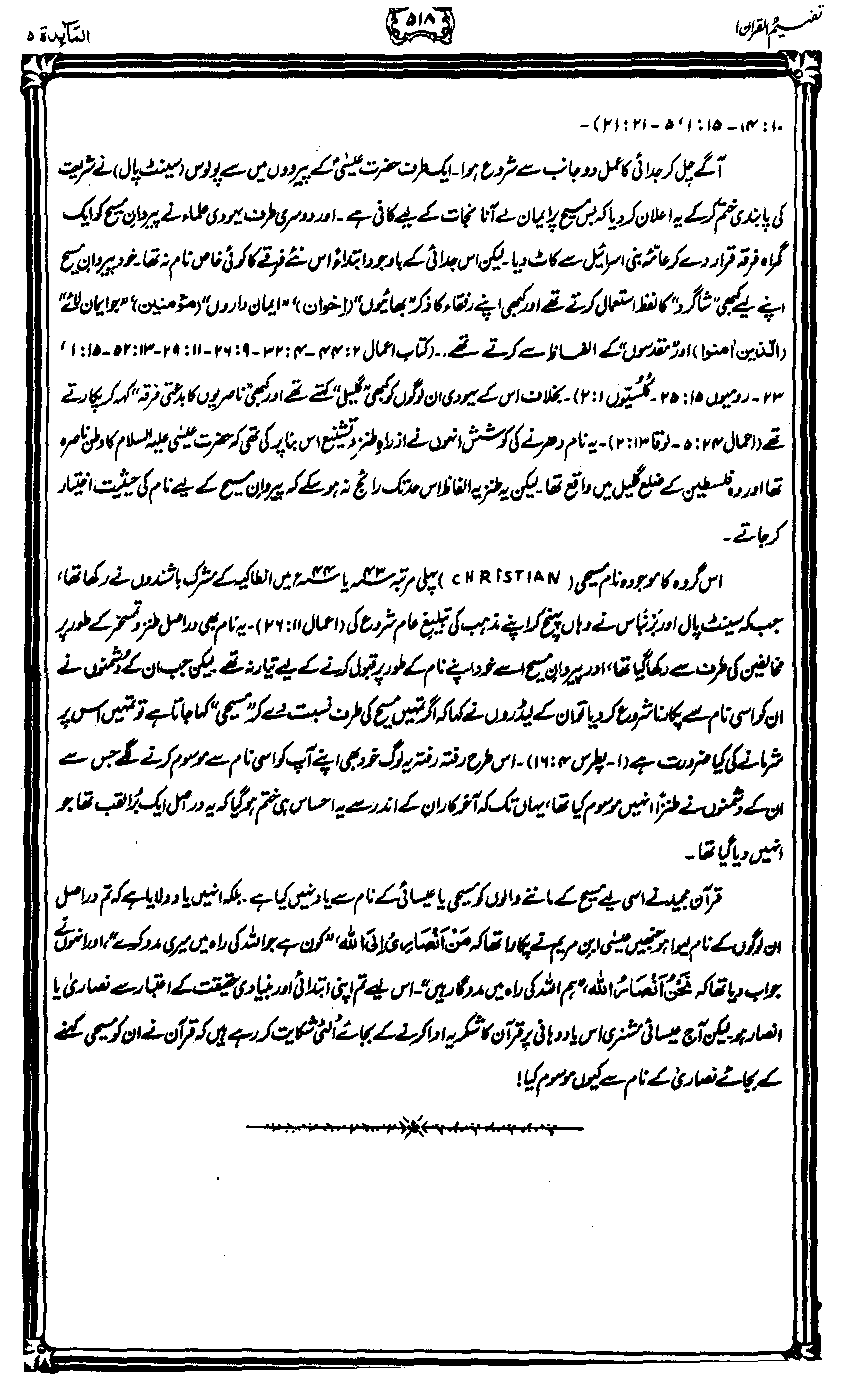 تفہیم القرآن ۱
۵۱۸
المآئدۃ ۵
۱۰:۱۴-۱۵:۱، ۵-۲۱:۲۱)-
آگے چل کر جدائی کا عمل دو جانب سے شروع ہوا۔ ایک طرف حضرت عیسیٰؑ کے پیرووں میں سے پولوس (سینٹ پال) نے شریعت
کی پابندی ختم کرکے یہ اعلان کر دیا کہ بس مسیح پر ایمان لے آنا نجات کے لیے کافی ہے۔ اور دوسری طرف یہودی علماء نے پیروانِ مسیح کو ایک
گمراہ فرقہ قرار دے کر عامّۂ بنی اسرائیل سے کاٹ دیا۔ لیکن اس جدائی کے باوجود ابتداءً اس نئے فرقے کا کوئی خاص نام نہ تھا۔ خود پیروانِ مسیح
اپنے لیے کبھی ”شاگرد“ کا لفظ استعمال کرتے تھے اور کبھی اپنے رفقاء کا ذکر ”بھائیوں“ (اِخوان)، ”ایمان داروں“ (مؤمنین)، ”جو ایمان لائے“
(الّذین اٰمنوا) اور ”مقدسوں“ کے الفاظ سے کرتے تھے۔ (کتاب اعمال ۲:۴۴-۴:۳۲-۹:۲۶-۱۱:۲۹-۱۳:۵۲-۱۵:۱،
۲۳-رومیوں ۱۵:۲۵-کُلُسّیّوں ۱:۲)۔ بخلاف اس کے یہودی ان لوگوں کو کبھی ”گلیلی“ کہتے تھے اور کبھی ”ناصریوں کا بدعتی فرقہ“ کہہ کر پکارتے
تھے (اعمال ۲۴:۵-لوقا ۱۳:۲)۔ یہ نام دھرنے کی کوشش انہوں نے از راہِ طنز و تشنیع اس بنا پر کی تھی کہ حضرت عیسیٰ علیہ السلام کا وطن ناصرہ
تھا اور وہ فلسطین کے ضلع گلیل میں واقع تھا۔ لیکن یہ طنزیہ الفاظ اس حد تک رائج نہ ہو سکے کہ پیروانِ مسیح کے لیے نام کی حیثیت اختیار
کر جاتے۔
اس گروہ کا موجودہ نام مسیحی (CHRISTIAN) پہلی مرتبہ ۴۳ء یا ۴۴ء میں انطاکیہ کے مشرک باشندوں نے رکھا تھا،
جب کہ سینٹ پال اور برنباس نے وہاں پہنچ کر اپنے مذہب کی تبلیغِ عام شروع کی (اعمال ۱۱:۲۶)۔ یہ نام بھی دراصل طنز و تمسخر کے طور پر
مخالفین کی طرف سے رکھا گیا تھا، اور پیروانِ مسیح اسے خود اپنے نام کے طور پر قبول کرنے کے لیے تیار نہ تھے۔ لیکن جب ان کے دشمنوں نے
ان کو اسی نام سے پکارنا شروع کر دیا تو ان کے لیڈروں نے کہا کہ اگر تمہیں مسیح کی طرف نسبت دے کر ”مسیحی“ کہا جاتا ہے تو تمہیں اس پر
شرمانے کی کیا ضرورت ہے (۱-پطرس ۴:۱۶)۔ اس طرح رفتہ رفتہ یہ لوگ خود بھی اپنے آپ کو اسی نام سے موسوم کرنے لگے جس سے
ان کے دشمنوں نے طنزاً انہیں موسوم کیا تھا، یہاں تک کہ آخر کار ان کے اندر سے یہ احساس ہی ختم ہو گیا کہ یہ دراصل ایک بُرا لقب تھا جو
انہیں دیا گیا تھا۔
قرآن مجید نے اسی لیے مسیح کے ماننے والوں کو مسیحی یا عیسائی کے نام سے یاد نہیں کیا ہے۔ بلکہ انہیں یاد دلایا ہے کہ تم دراصل
ان لوگوں کے نام لیوا ہو جنہیں عیسیٰ ابن مریم نے پکارا تھا کہ مَنْ اَنْصَارِیْٓ اِلَی اللہِ، ”کون ہے جو اللہ کی راہ میں میری مدد کرے“، اور انہوں نے
جواب دیا تھا کہ نَحْنُ اَنْصَارُ اللہِ، ”ہم اللہ کی راہ میں مددگار ہیں“۔ اس لیے تم اپنی ابتدائی اور بنیادی حقیقت کے اعتبار سے نصاریٰ یا
انصار ہو، لیکن آج عیسائی مشنری اس یاد دہانی پر قرآن کا شکریہ ادا کرنے کے بجائے اُلٹی شکایت کر رہے ہیں کہ قرآن نے ان کو مسیحی کہنے
کے بجائے نصاریٰ کے نام سے کیوں موسوم کیا!